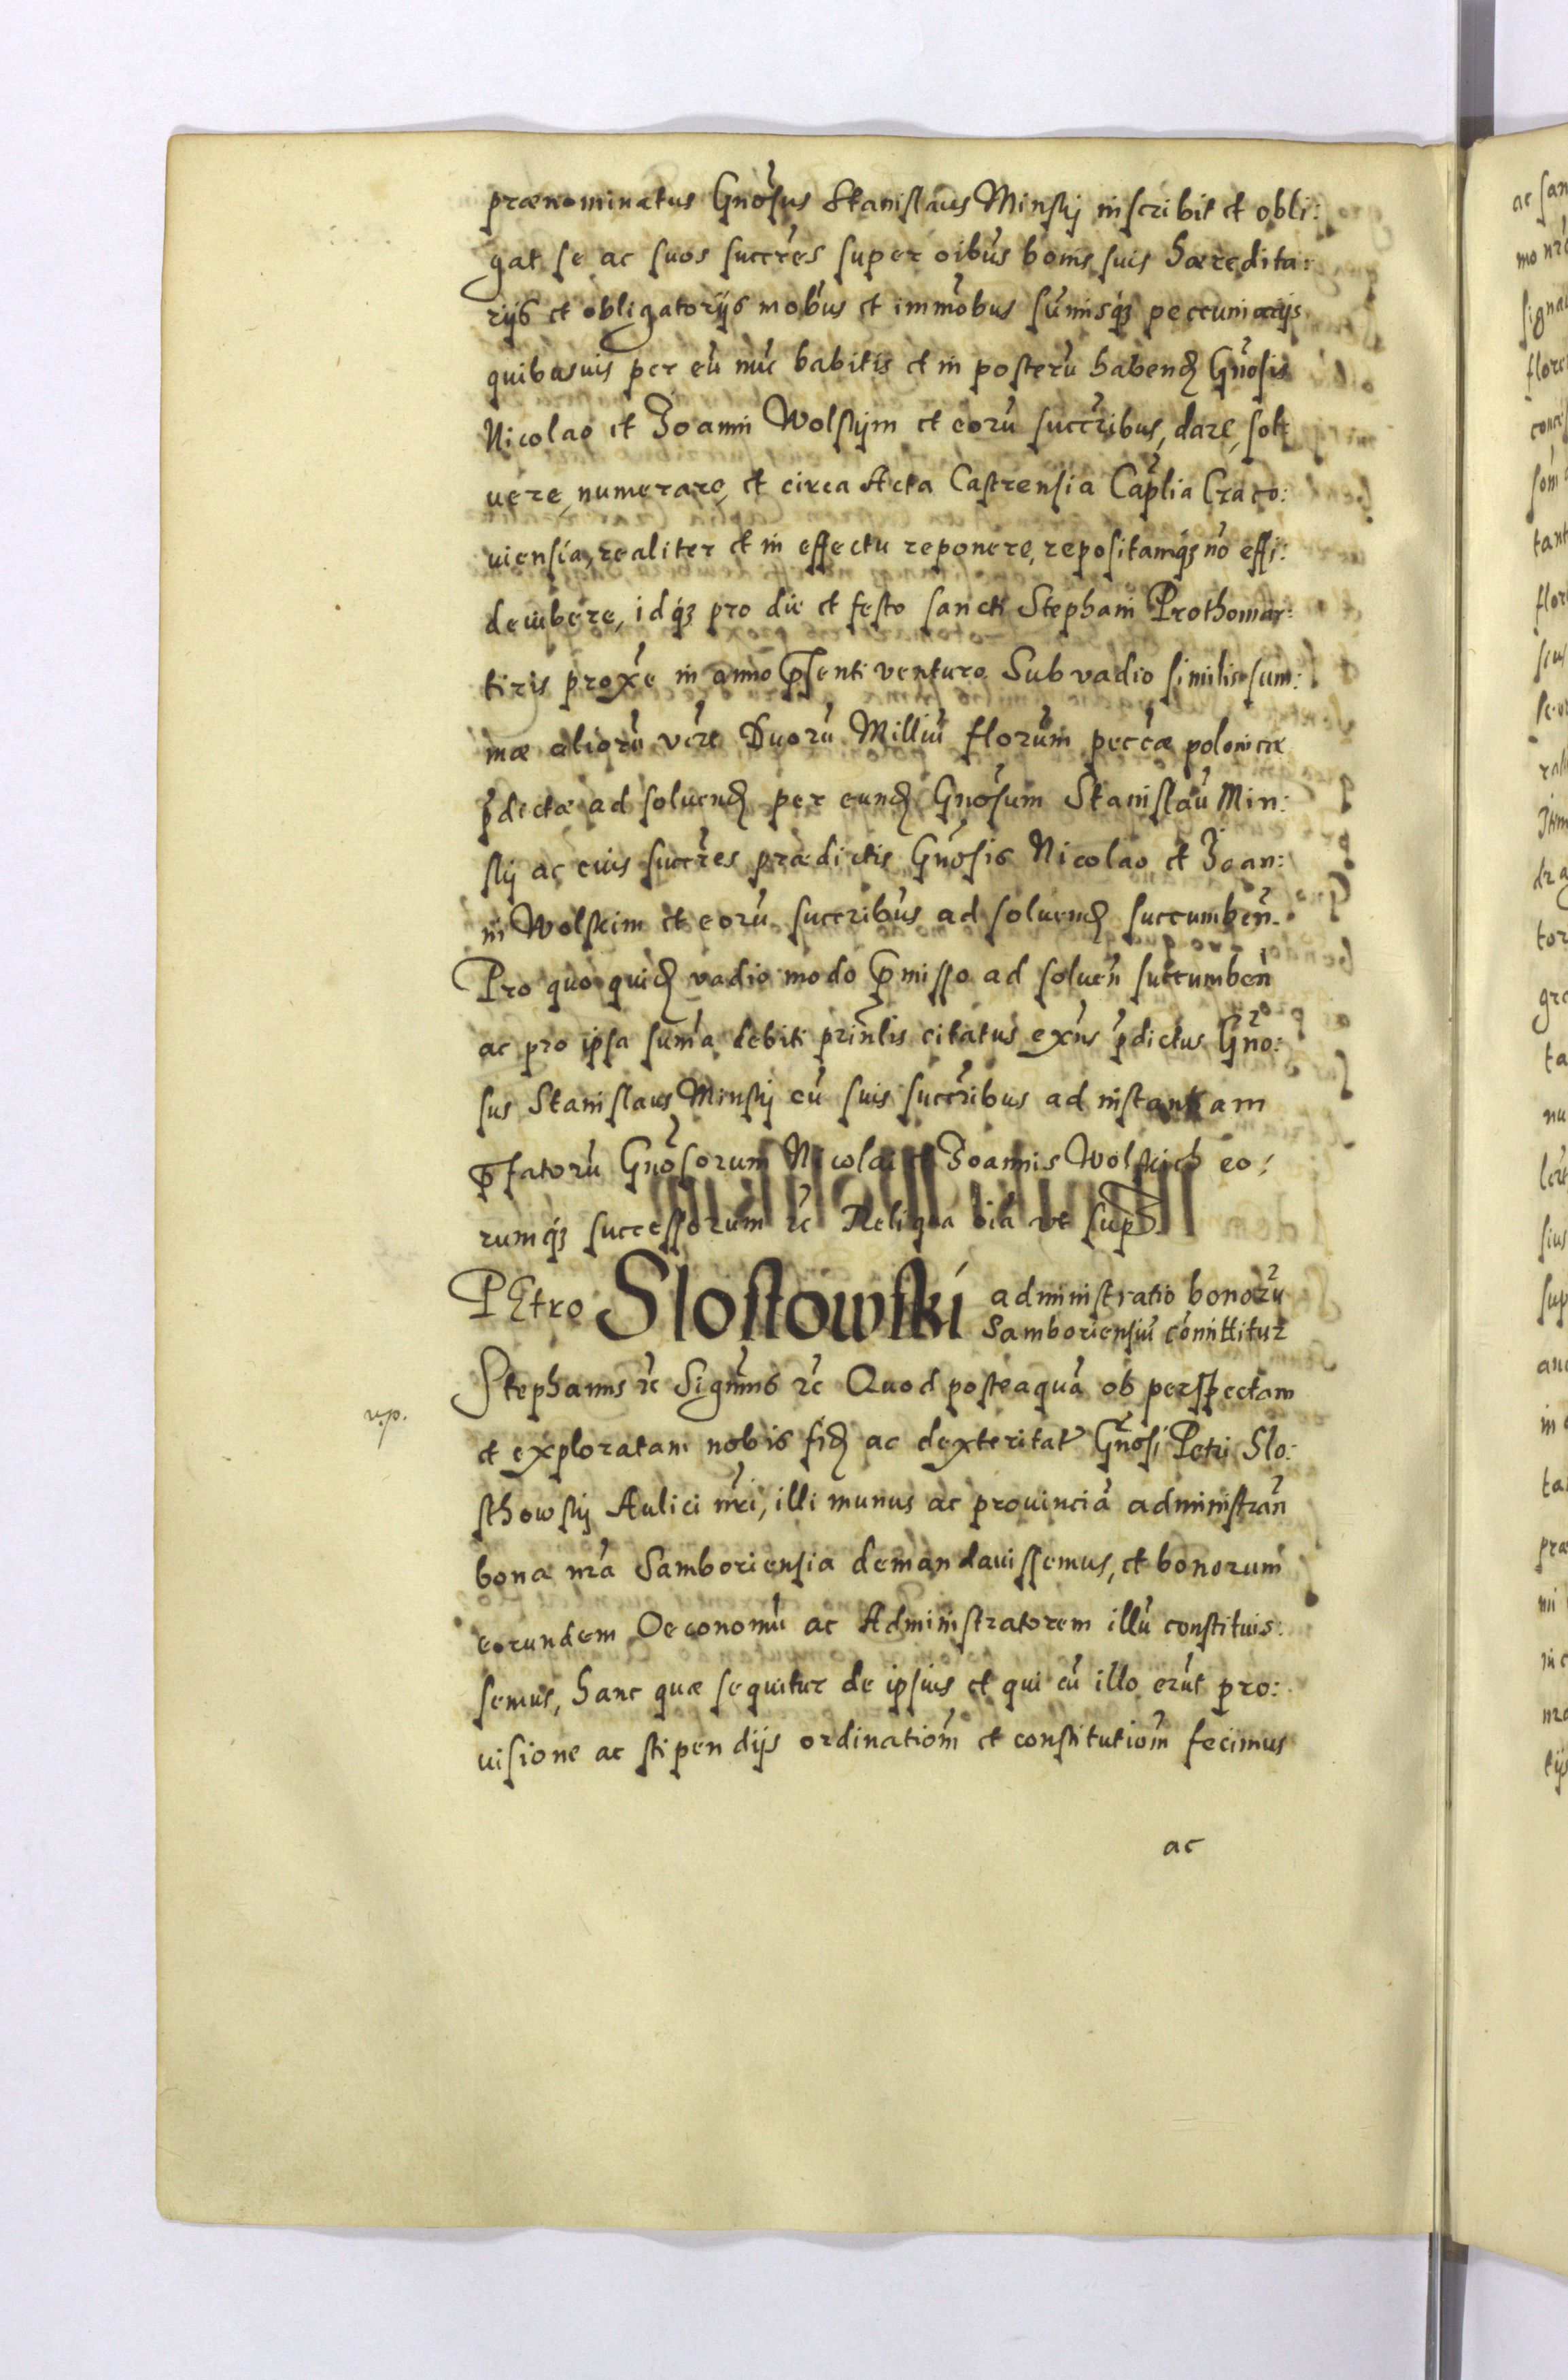 prænominatus Gnosus Stanislaus Minskij inscribit et obli:
gat se ac suos succres super oibus bonis suis hæredita:
rijs et obligatorijs mobus et immobus sumisq3 peccuniarijs
quibusuis per eu nuc habitis et in posteru habend Gnosis
Nicolao et Joanni Wolskijm et eoru succribus, dare, sol
uere, numerare, et circa Acta Castrensia Caplia Craco:
uiensia, realiter et in effectu reponere, repositamq3 no effi:
deiubere, idq3 pro die et festo sancti Stephani Prothomar:
tiris proxe in anno pñsenti venturo Sub vadio similis sum:
mæ alioru vcre Duoru Milliu florum peccæ polonicæ
pdictæ ad soluend per eund Gnosum Stanislau Min:
skij ac eius succres prædictis Gnosis Nicolao et Joan:
ni Wolskim et eoru succribus ad soluend succumben.
Pro quo quid vadio modo pmisso ad soluen succumben
ac pro ipsa suma debiti prinlis citatus exns pdictus Gno:
sus Stanislaus Minskij cu suis succribus ad instantiam
pfatoru Gnosorum Nicolai et Joannis Wolskich eo:
rumq3 successorum rc Reliqua oia vt sup
PEtro Slostowski administratio bonoru
Samboriensiu comittitur
Stephanus rc Signmus rc Quod posteaqua ob perspectam
et exploratam nobis fid ac dexteritat Gnosi Petri Slo:
sthowskij Aulici nri, illi munus ac prouincia administran
bona nra Samboriensia demandauissemus, et bonorum
eorundem Oeconomu ac Administratorem illu constituis:
semus, hanc quæ sequitur de ipsius et qui cu illo erut pro:
uisione ac stipendijs ordinatiom et constitutiom fecimus
ac